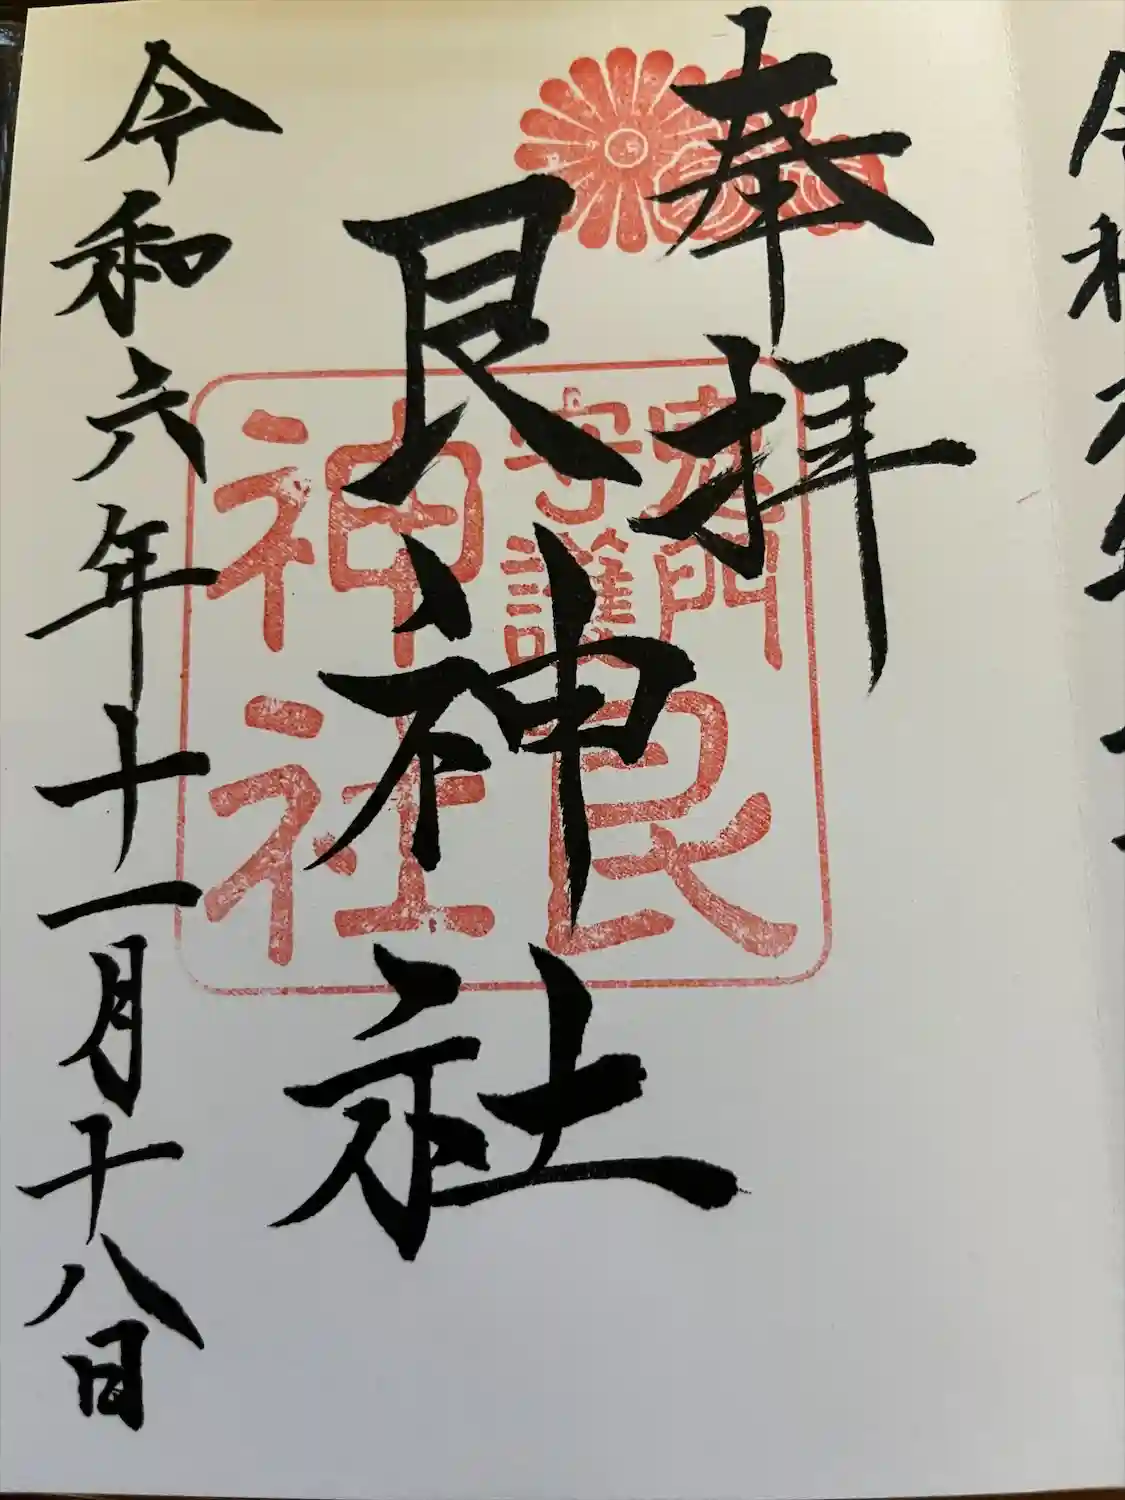 奉拝
艮神社
鬼門
守護
艮
神社
令和六年十一月十八日